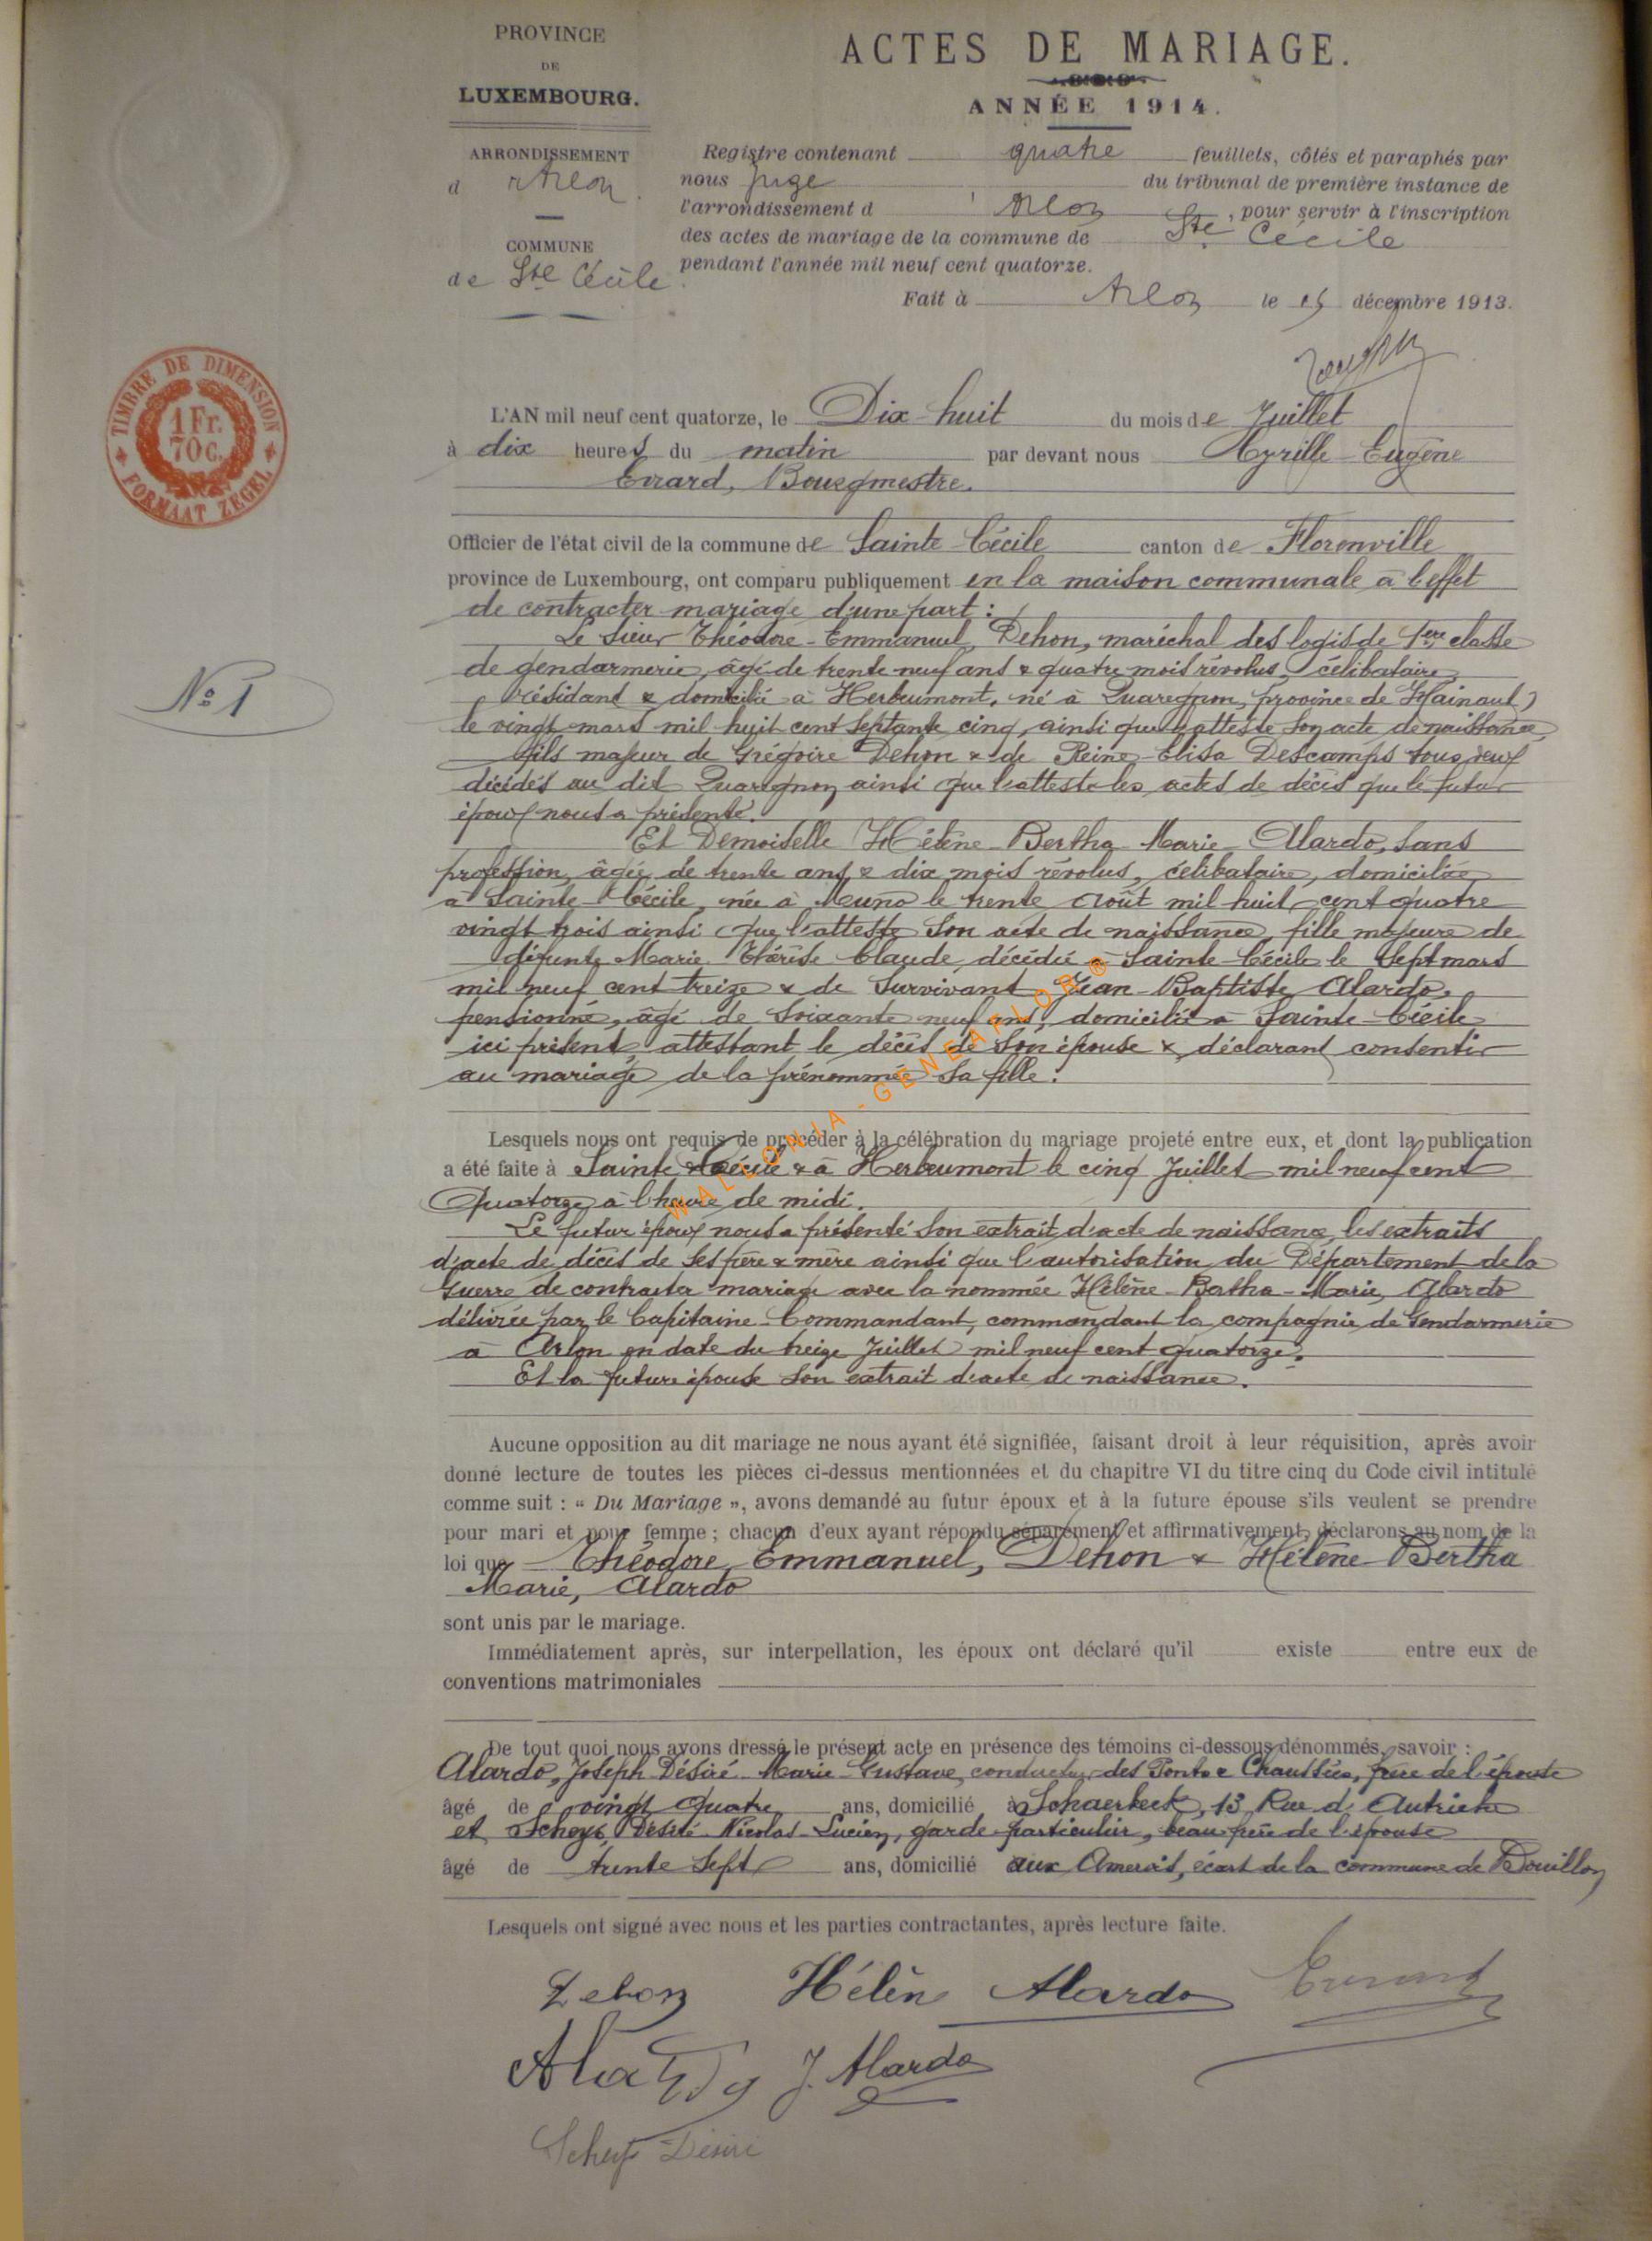 PROVINCE
DE
LUXEMBOURG.
ARRONDISSEMENT
d'Arlon.
COMMUNE
de Ste Cécile.
ACTES DE MARIAGE.
ANNÉE 1914.
Registre contenant quatre feuillets, côtés et paraphés par
nous juge du tribunal de première instance de
l'arrondissement d'Arlon, pour servir à l'inscription
des actes de mariage de la commune de Ste Cécile
pendant l'année mil neuf cent quatorze.
Fait à Arlon le 15 décembre 1913.
TIMBRE DE DIMENSION
1 Fr.
70 C.
FORMAAT ZEGEL
No 1
L'AN mil neuf cent quatorze, le Dix-huit du mois de Juillet
à dix heures du matin par devant nous Cyrille-Eugène
Evrard, Bourgmestre.
Officier de l'état civil de la commune de Sainte-Cécile canton de Florenville
province de Luxembourg, ont comparu publiquement en la maison communale à l'effet
de contracter mariage d'une part :
Le Sieur Théodore-Emmanuel Dehon, maréchal des logis de 1ère classe
de gendarmerie, âgé de trente-neuf ans & quatre mois révolus, célibataire,
résidant & domicilié à Herbeumont, né à Quaregnon, province de Hainaut,
le vingt mars mil huit cent septante cinq, ainsi que l'atteste son acte de naissance,
fils majeur de Grégoire Dehon & de Reine-Elisa Descamps tous deux
décédés au dit Quaregnon ainsi que l'atteste les actes de décès que le futur
époux nous a présenté.
Et Demoiselle Hélène-Bertha-Marie-Alardo, sans
profession, âgée de trente ans & dix mois révolus, célibataire, domiciliée
à Sainte-Cécile, née à Muno le trente Août mil huit cent quatre
vingt trois ainsi que l'atteste son acte de naissance, fille majeure de
défunte Marie-Thérèse Claude, décédée à Sainte-Cécile le Sept mars
mil neuf cent treize & de survivant Jean-Baptiste Alardo,
pensionné, âgé de soixante neuf ans, domicilié à Sainte-Cécile
ici présent, attestant le décès de son épouse & déclarant consentir
au mariage de la prénommée sa fille.
WALLONIA - GENEAFLOR ®
Lesquels nous ont requis de procéder à la célébration du mariage projeté entre eux, et dont la publication
a été faite à Sainte Cécile & à Herbeumont le cinq Juillet mil neuf cent
Quatorze à l'heure de midi.
Le futur époux nous a présenté son extrait d'acte de naissance, les extraits
d'acte de décès de ses père & mère ainsi que l'autorisation du Département de la
Guerre de contracter mariage avec la nommée Hélène-Bertha-Marie, Alardo
délivrée par le Capitaine-Commandant, commandant la compagnie de Gendarmerie
à Arlon en date du treize Juillet mil neuf cent quatorze.
Et la future épouse son extrait d'acte de naissance.
Aucune opposition au dit mariage ne nous ayant été signifiée, faisant droit à leur réquisition, après avoir
donné lecture de toutes les pièces ci-dessus mentionnées et du chapitre VI du titre cinq du Code civil intitulé
comme suit : « Du Mariage », avons demandé au futur époux et à la future épouse s'ils veulent se prendre
pour mari et pour femme ; chacun d'eux ayant répondu séparément et affirmativement, déclarons au nom de la
loi que Théodore, Emmanuel, Dehon & Hélène-Bertha
Marie, Alardo
sont unis par le mariage.
Immédiatement après, sur interpellation, les époux ont déclaré qu'il existe entre eux de
conventions matrimoniales
De tout quoi nous avons dressé le présent acte en présence des témoins ci-dessous dénommés, savoir :
Alardo, Joseph-Désiré-Marie-Gustave, conducteur des Ponts & Chaussées, frère de l'épouse
âgé de vingt quatre ans, domicilié à Schaerbeek, 13 Rue d'Autriche
et Désiré-Nicolas-Lucien, garde particulier, beau frère de l'épouse
âgé de trente sept ans, domicilié aux Amerois, écart de la commune de Bouillon
Lesquels ont signé avec nous et les parties contractantes, après lecture faite.
Dehon Hélène Alardo Evrard
Alardo J. Alardo
Désiré